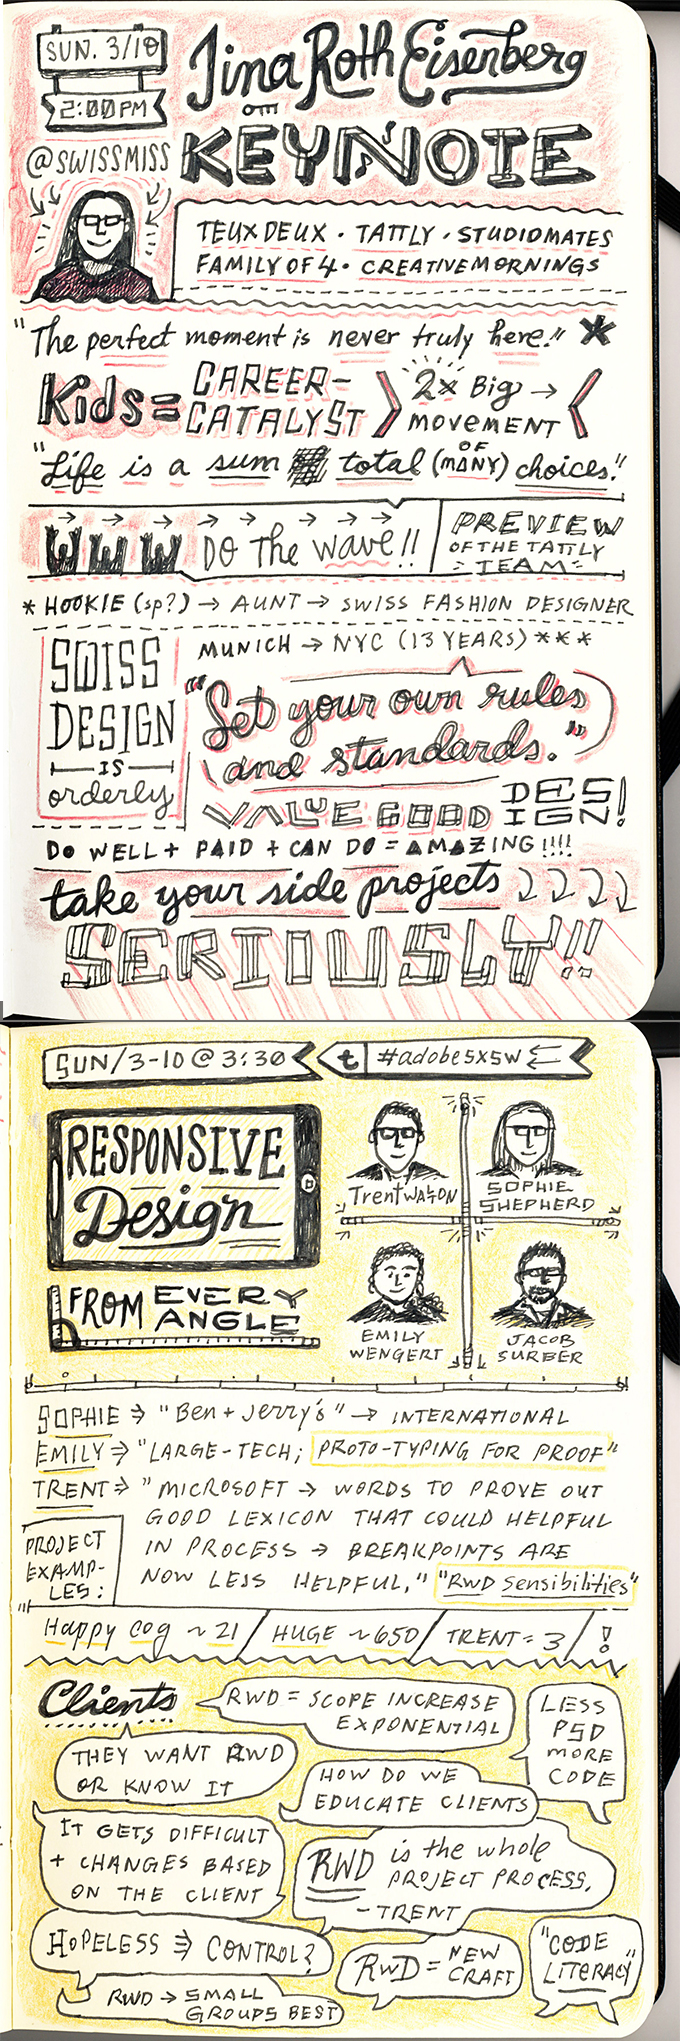 SUN. 3/10
2:00PM
@SWISSMISS
Tina Roth Eisenberg
KEYNOTE
TEUXDEUX · TATTLY · STUDIOMATES
FAMILY OF 4 · CREATIVEMORNINGS
"The perfect moment is never truly here." *
Kids = CAREER-CATALYST
2x Big → MOVEMENT
"Life is a sum total OF (MANY) choices."
WWW DO The wave!!
PREVIEW
OF THE TATTLY
TEAM
* HOOKIE (sp?) → AUNT → SWISS FASHION DESIGNER
MUNICH → NYC (13 YEARS) ***
SWISS
DESIGN
IS
orderly
"Set your own rules
and standards."
VALUE GOOD DESIGN!
DO WELL + PAID + CAN DO = AMAZING!!!!
take your side projects
SERIOUSLY!!
SUN/3-10 @ 3:30
t #adobesxsw
RESPONSIVE
Design
FROM EVERY
ANGLE
Trent WALTON
SOPHIE
SHEPHERD
EMILY
WENGERT
JACOB
SURBER
SOPHIE ⇒ "Ben + Jerry's" → INTERNATIONAL
EMILY ⇒ "LARGE-TECH; PROTO-TYPING FOR PROOF"
TRENT ⇒ "MICROSOFT → WORDS TO PROVE OUT
GOOD LEXICON THAT COULD HELPFUL
IN PROCESS → BREAKPOINTS ARE
NOW LESS HELPFUL." "RWD sensibilities"
PROJECT
EXAMP-
LES:
Happy Cog ~21 / HUGE ~650 / TRENT = 3 / !
Clients
RWD = SCOPE INCREASE
EXPONENTIAL
LESS
PSD
MORE
CODE
THEY WANT RWD
OR KNOW IT
HOW DO WE
EDUCATE CLIENTS
IT GETS DIFFICULT
+ CHANGES BASED
ON THE CLIENT
RWD is the whole
PROJECT PROCESS.
-TRENT
HOPELESS ⇒ CONTROL?
RWD = NEW
CRAFT
"CODE
LITERACY"
RWD → SMALL
GROUPS BEST